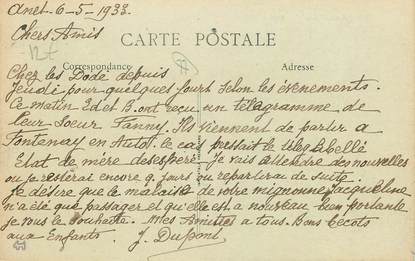 Anet - 6 - 5 - 1933.
Chers Amis
12€
CARTE POSTALE
Correspondance
Adresse
Chez les Dodé depuis
jeudi pour quelques jours selon les évènements.
Ce matin Ed et B. ont reçu un télégramme de
leur Soeur Fanny. Ils viennent de partir à
Fontenay en Auto. le cas pressait le télég libellé
Etat de mère désespéré Je vais attendre des nouvelles
ou je resterai encore 9 jours ou repartirai de suite.
Je désire que le malaise de votre mignonne Jacqueline
n'a été que passager et qu'elle est a nouveau bien portante
je vous le souhaite. Mes Amitiés a tous. Bons bécots
aux Enfants. J. Dupont